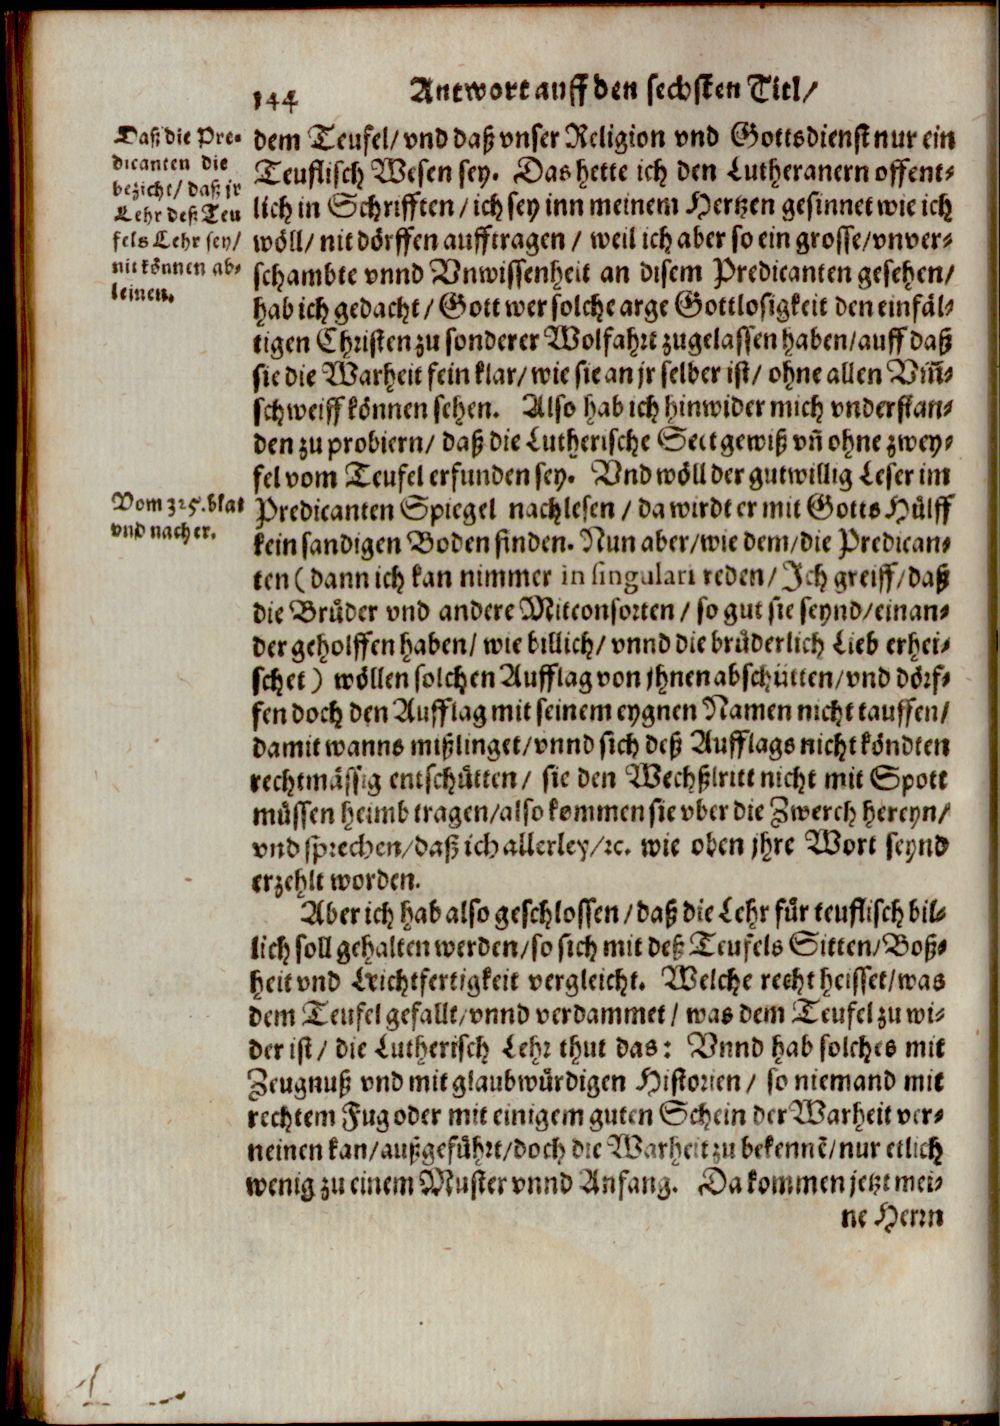 144
Antwort auff den sechsten Titl/
Daß die Pre-
dicanten die
bezicht/ daß jr
Lehr deß Teu
fels Lehr sey/
nit können ab-
leinen.
dem Teufel/ vnd daß vnser Religion vnd Gottsdienst nur ein
Teuflisch Wesen sey. Das hette ich den Lutheranern offent-
lich in Schrifften/ ich sey inn meinem Hertzen gesinnet wie ich
wöll/ nit dörffen aufftragen/ weil ich aber so ein grosse/ vnver-
schambte vnnd Vnwissenheit an disem Predicanten gesehen/
hab ich gedacht/ Gott wer solche arge Gottlosigkeit den einfäl-
tigen Christen zu sonderer Wolfahrt zugelassen haben/ auff daß
sie die Warheit fein klar/ wie sie an jr selber ist/ ohne allen Vm̃-
schweiff können sehen. Also hab ich hinwider mich vnderstan-
den zu probiern/ daß die Lutherische Sect gewiß vñ ohne zwey-
fel vom Teufel erfunden sey. Vnd wöll der gutwillig Leser im
Vom 325. blat
vnd nach er.
Predicanten Spiegel nachlesen/ da wirdt er mit Gotts Hülff
kein sandigen Boden finden. Nun aber/ wie dem/ die Predican-
ten (dann ich kan nimmer in singulari reden/ Ich greiff/ daß
die Brüder vnd andere Mitconsorten/ so gut sie seynd/ einan-
der geholffen haben/ wie billich/ vnnd die brüderlich Lieb erhei-
schet) wöllen solchen Aufflag von jhnen abschütten/ vnd dörf-
fen doch den Aufflag mit seinem eygnen Namen nicht tauffen/
damit wanns mißlinget/ vnnd sich deß Aufflags nicht köndten
rechtmässig entschütten/ sie den Wechßlritt nicht mit Spott
müssen heimb tragen/ also kommen sie vber die Zwerch hereyn/
vnd sprechen/ daß ich allerley/ ꝛc. wie oben jhre Wort seynd
erzehlt worden.
Aber ich hab also geschlossen/ daß die Lehr für teuflisch bil-
lich soll gehalten werden/ so sich mit deß Teufels Sitten/ Boß-
heit vnd Leichtfertigkeit vergleicht. Welche recht heisset/ was
dem Teufel gefallt/ vnnd verdammet/ was dem Teufel zu wi-
der ist/ die Lutherisch Lehr thut das: Vnnd hab solches mit
Zeugnuß vnd mit glaubwürdigen Historien/ so niemand mit
rechtem Fug oder mit einigem guten Schein der Warheit ver-
neinen kan/ außgeführt/ doch die Warheit zu bekennẽ/ nur etlich
wenig zu einem Muster vnnd Anfang. Da kommen jetzt mei-
ne Herrn